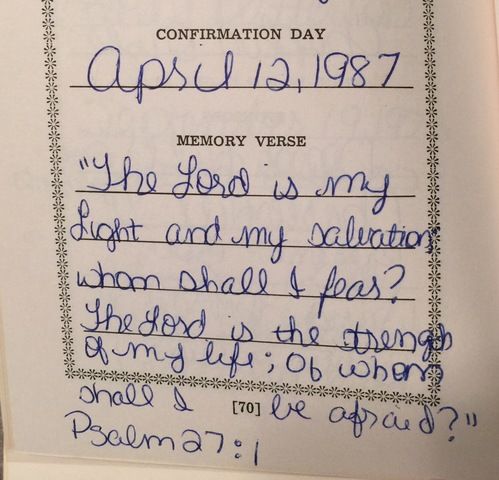 CONFIRMATION DAY
April 12, 1987
MEMORY VERSE
"The Lord is my
Light and my salvation;
whom shall I fear?
The Lord is the strength
of my life; Of whom
shall I [70] be afraid?"
Psalm 27:1